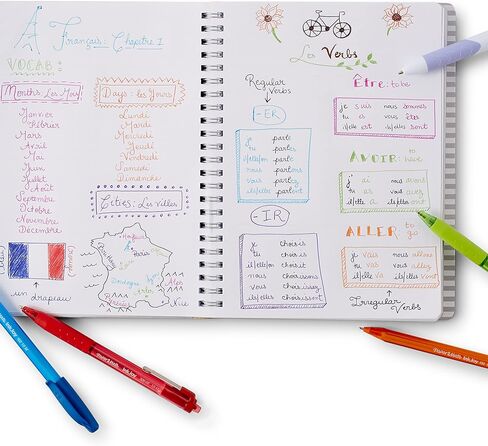 Français: Chapitre 1
VOCAB:
Months: Les Mois
Janvier
Février
Mars
Avril
Mai
Juin
Juillet
Août
Septembre
Octobre
Novembre
Décembre
Days: les Jours
Lundi
Mardi
Mercredi
Jeudi
Vendredi
Samedi
Dimanche
Cities: Les Villes
un drapeau
Paris
Nice
Les Verbs
Regular Verbs
-ER
je parle
tu parles
il/elle/on parle
nous parlons
vous parlez
ils/elles parlent
-IR
je choisis
tu choisis
il/elle/on choisit
nous choisissons
vous choisissez
ils/elles choisissent
Être: to be
je suis nous sommes
tu es vous êtes
il/elle est ils/elles sont
AVOIR: to have
j'ai nous avons
tu as vous avez
il/elle a ils/elles ont
ALLER: to go
je vais nous allons
tu vas vous allez
il/elle va ils/elles vont
Irregular Verbs
PaperMate InkJoy
PaperMate InkJoy
PaperMate InkJoy